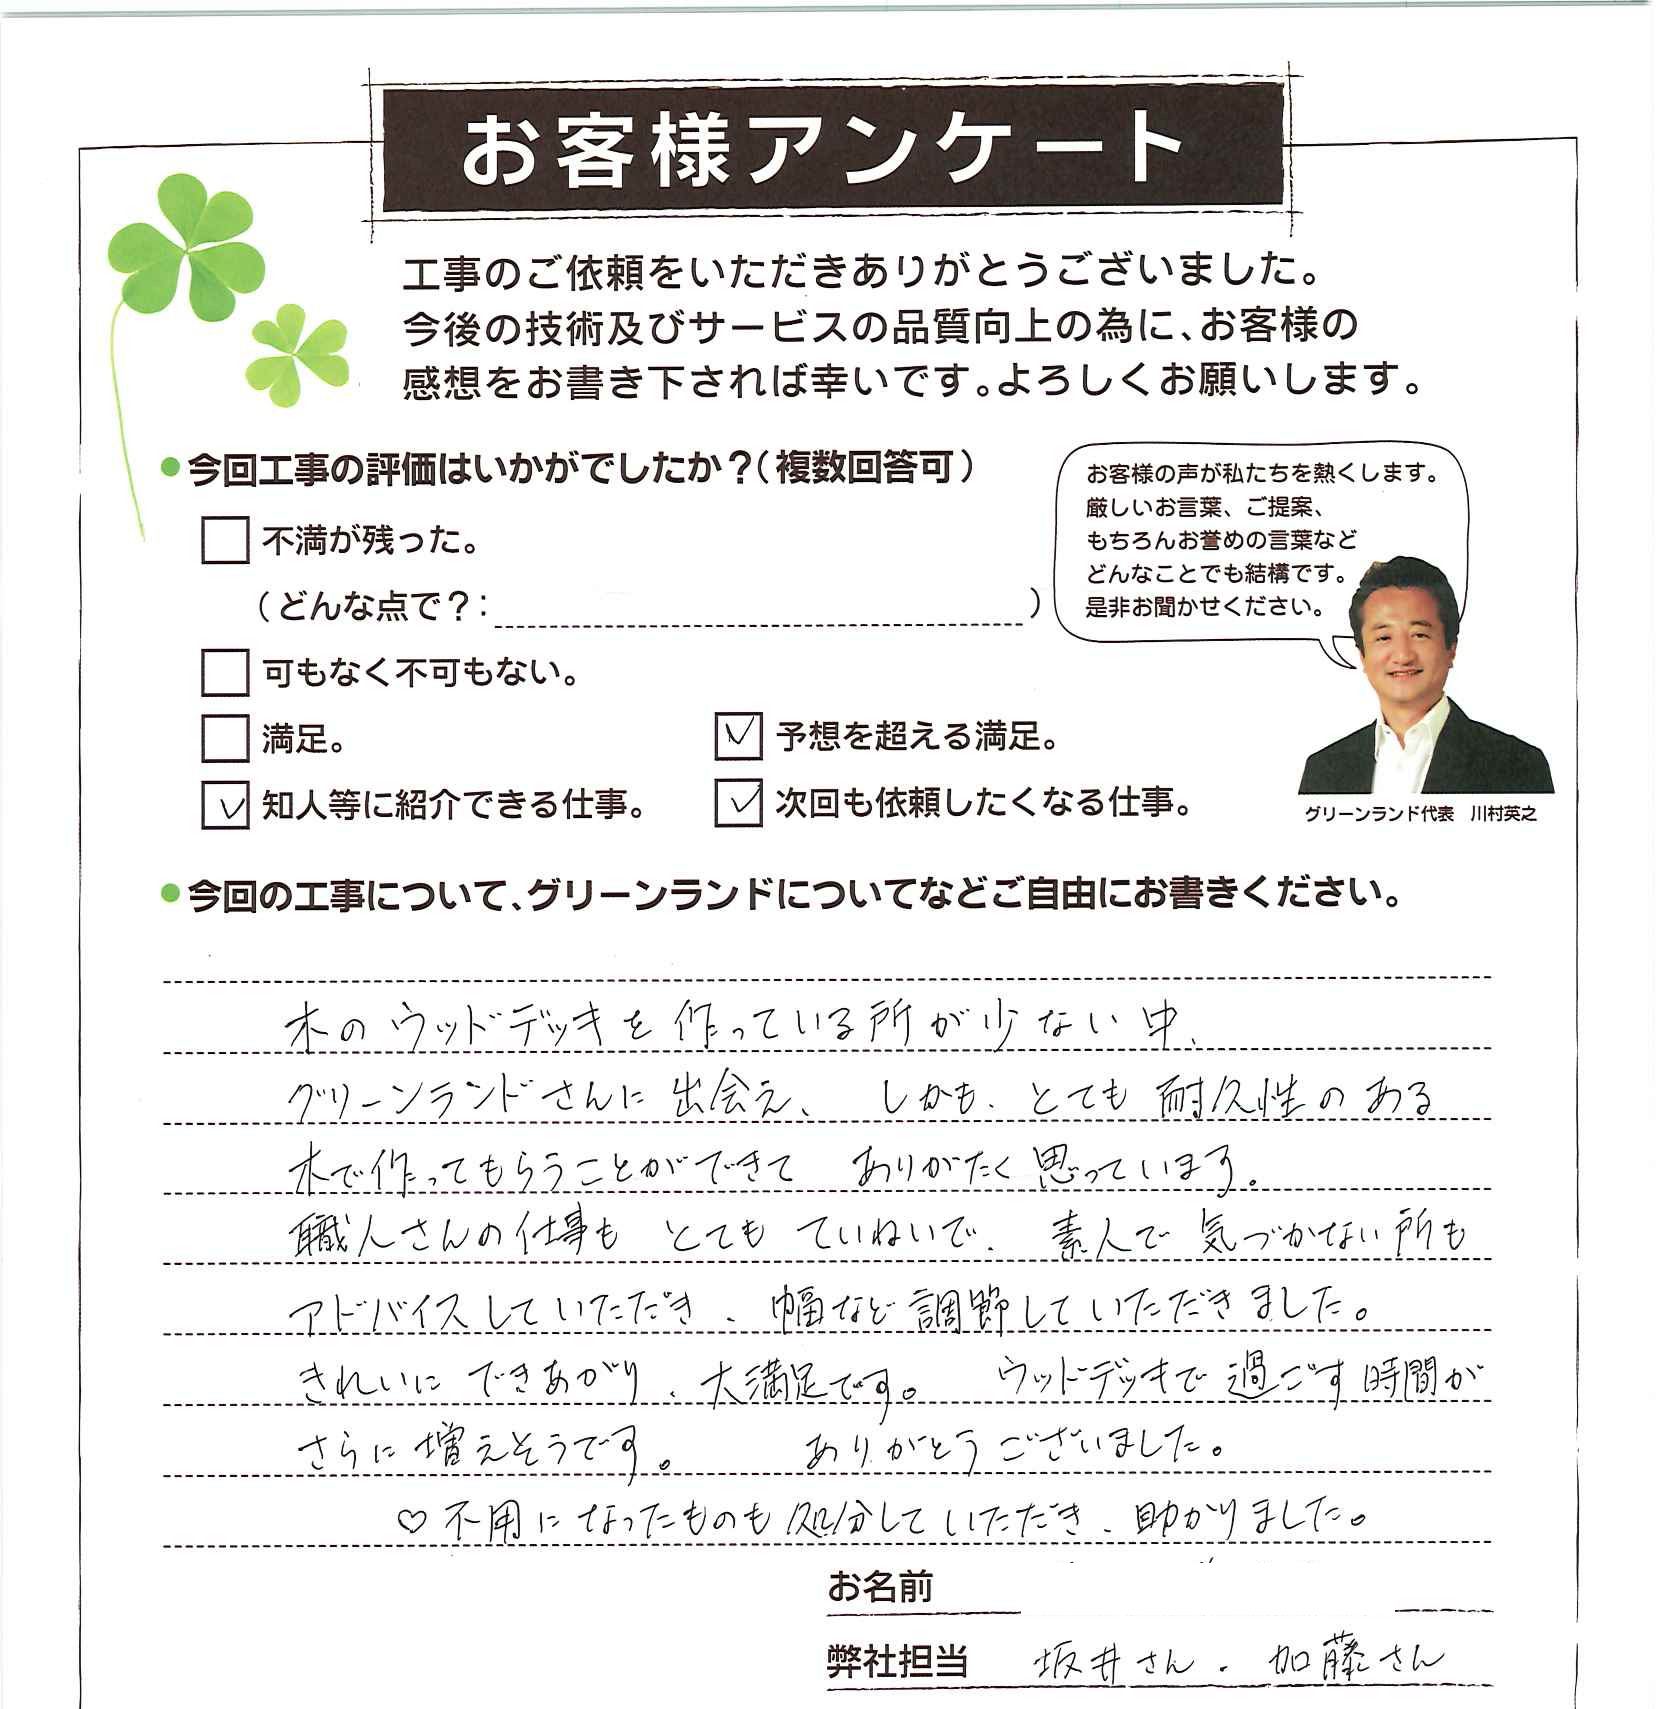 お客様アンケート
工事のご依頼をいただきありがとうございました。
今後の技術及びサービスの品質向上の為に、お客様の
感想をお書き下されば幸いです。よろしくお願いします。
今回工事の評価はいかがでしたか？（複数回答可）
不満が残った。
（どんな点で？：）
可もなく不可もない。
満足。
予想を超える満足。
知人等に紹介できる仕事。
次回も依頼したくなる仕事。
お客様の声が私たちを熱くします。
厳しいお言葉、ご提案、
もちろんお誉めの言葉など
どんなことでも結構です。
是非お聞かせください。
グリーンランド代表　川村英之
今回の工事について、グリーンランドについてなどご自由にお書きください。
木のウッドデッキを作っている所が少ない中、
グリーンランドさんに出会え、しかも、とても耐久性のある
木で作ってもらうことができて　ありがたく思っています。
職人さんの仕事も　とても　ていねいで、素人で気づかない所も
アドバイスしていただき、幅など調節していただきました。
きれいに できあがり、大満足です。　ウッドデッキで過ごす時間が
さらに増えそうです。　ありがとうございました。
♡不用になったものも処分していただき、助かりました。
お名前
弊社担当　坂井さん・加藤さん